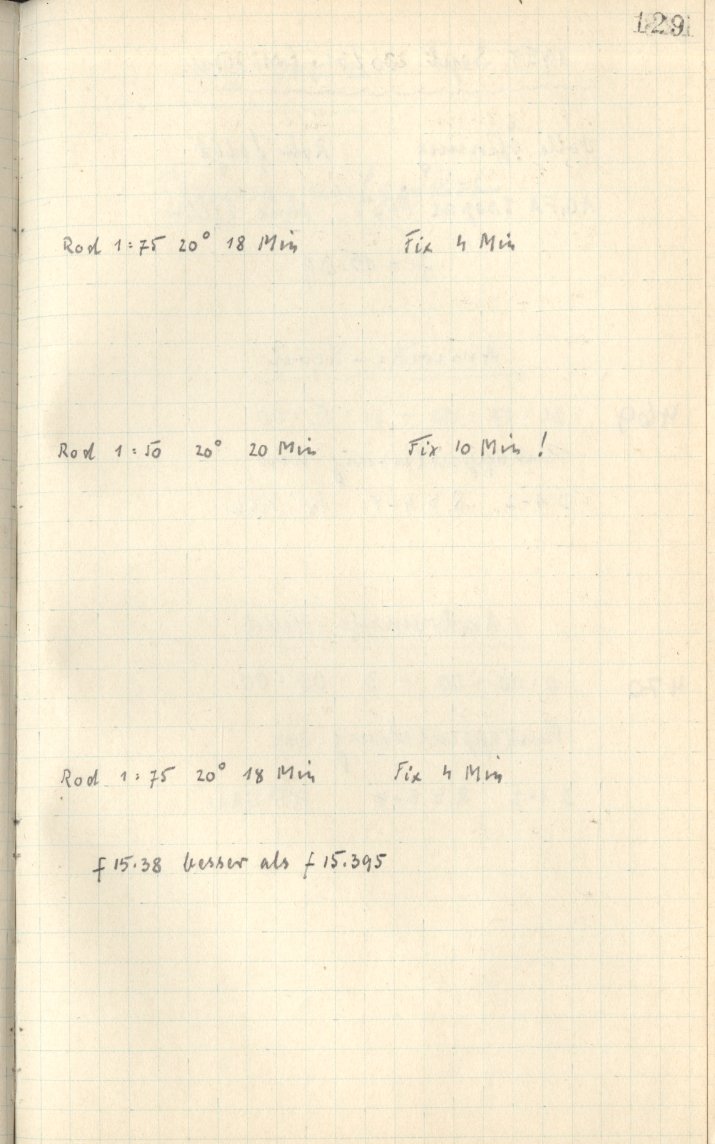 129
Rod 1:75 20° 18 Min Fix 4 Min
Rod 1:50 20° 20 Min Fix 10 Min !
Rod 1:75 20° 18 Min Fix 4 Min
f 15.38 besser als f 15.395